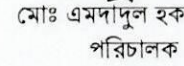 মোঃ এমদাদুল হক
পরিচালক